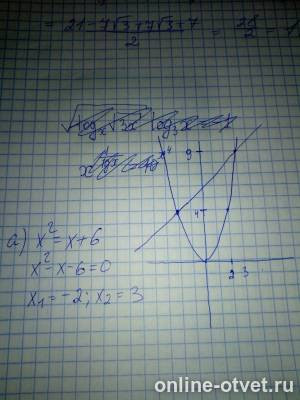 = 21-7√3+7√3+7 / 2 = 28 / 2 =
9
4
2 3
а) x² = x+6
x²-x-6=0
x₁=-2; x₂=3
online-otvet.ru